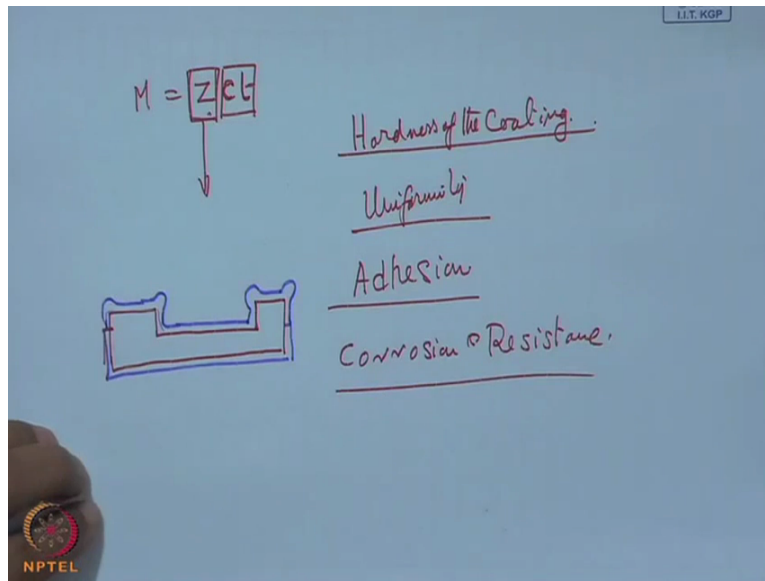 I.I.T. KGP
M = Z ct
Hardness of the Coating.
Uniformity
Adhesion
Corrosion Resistane.
NPTEL